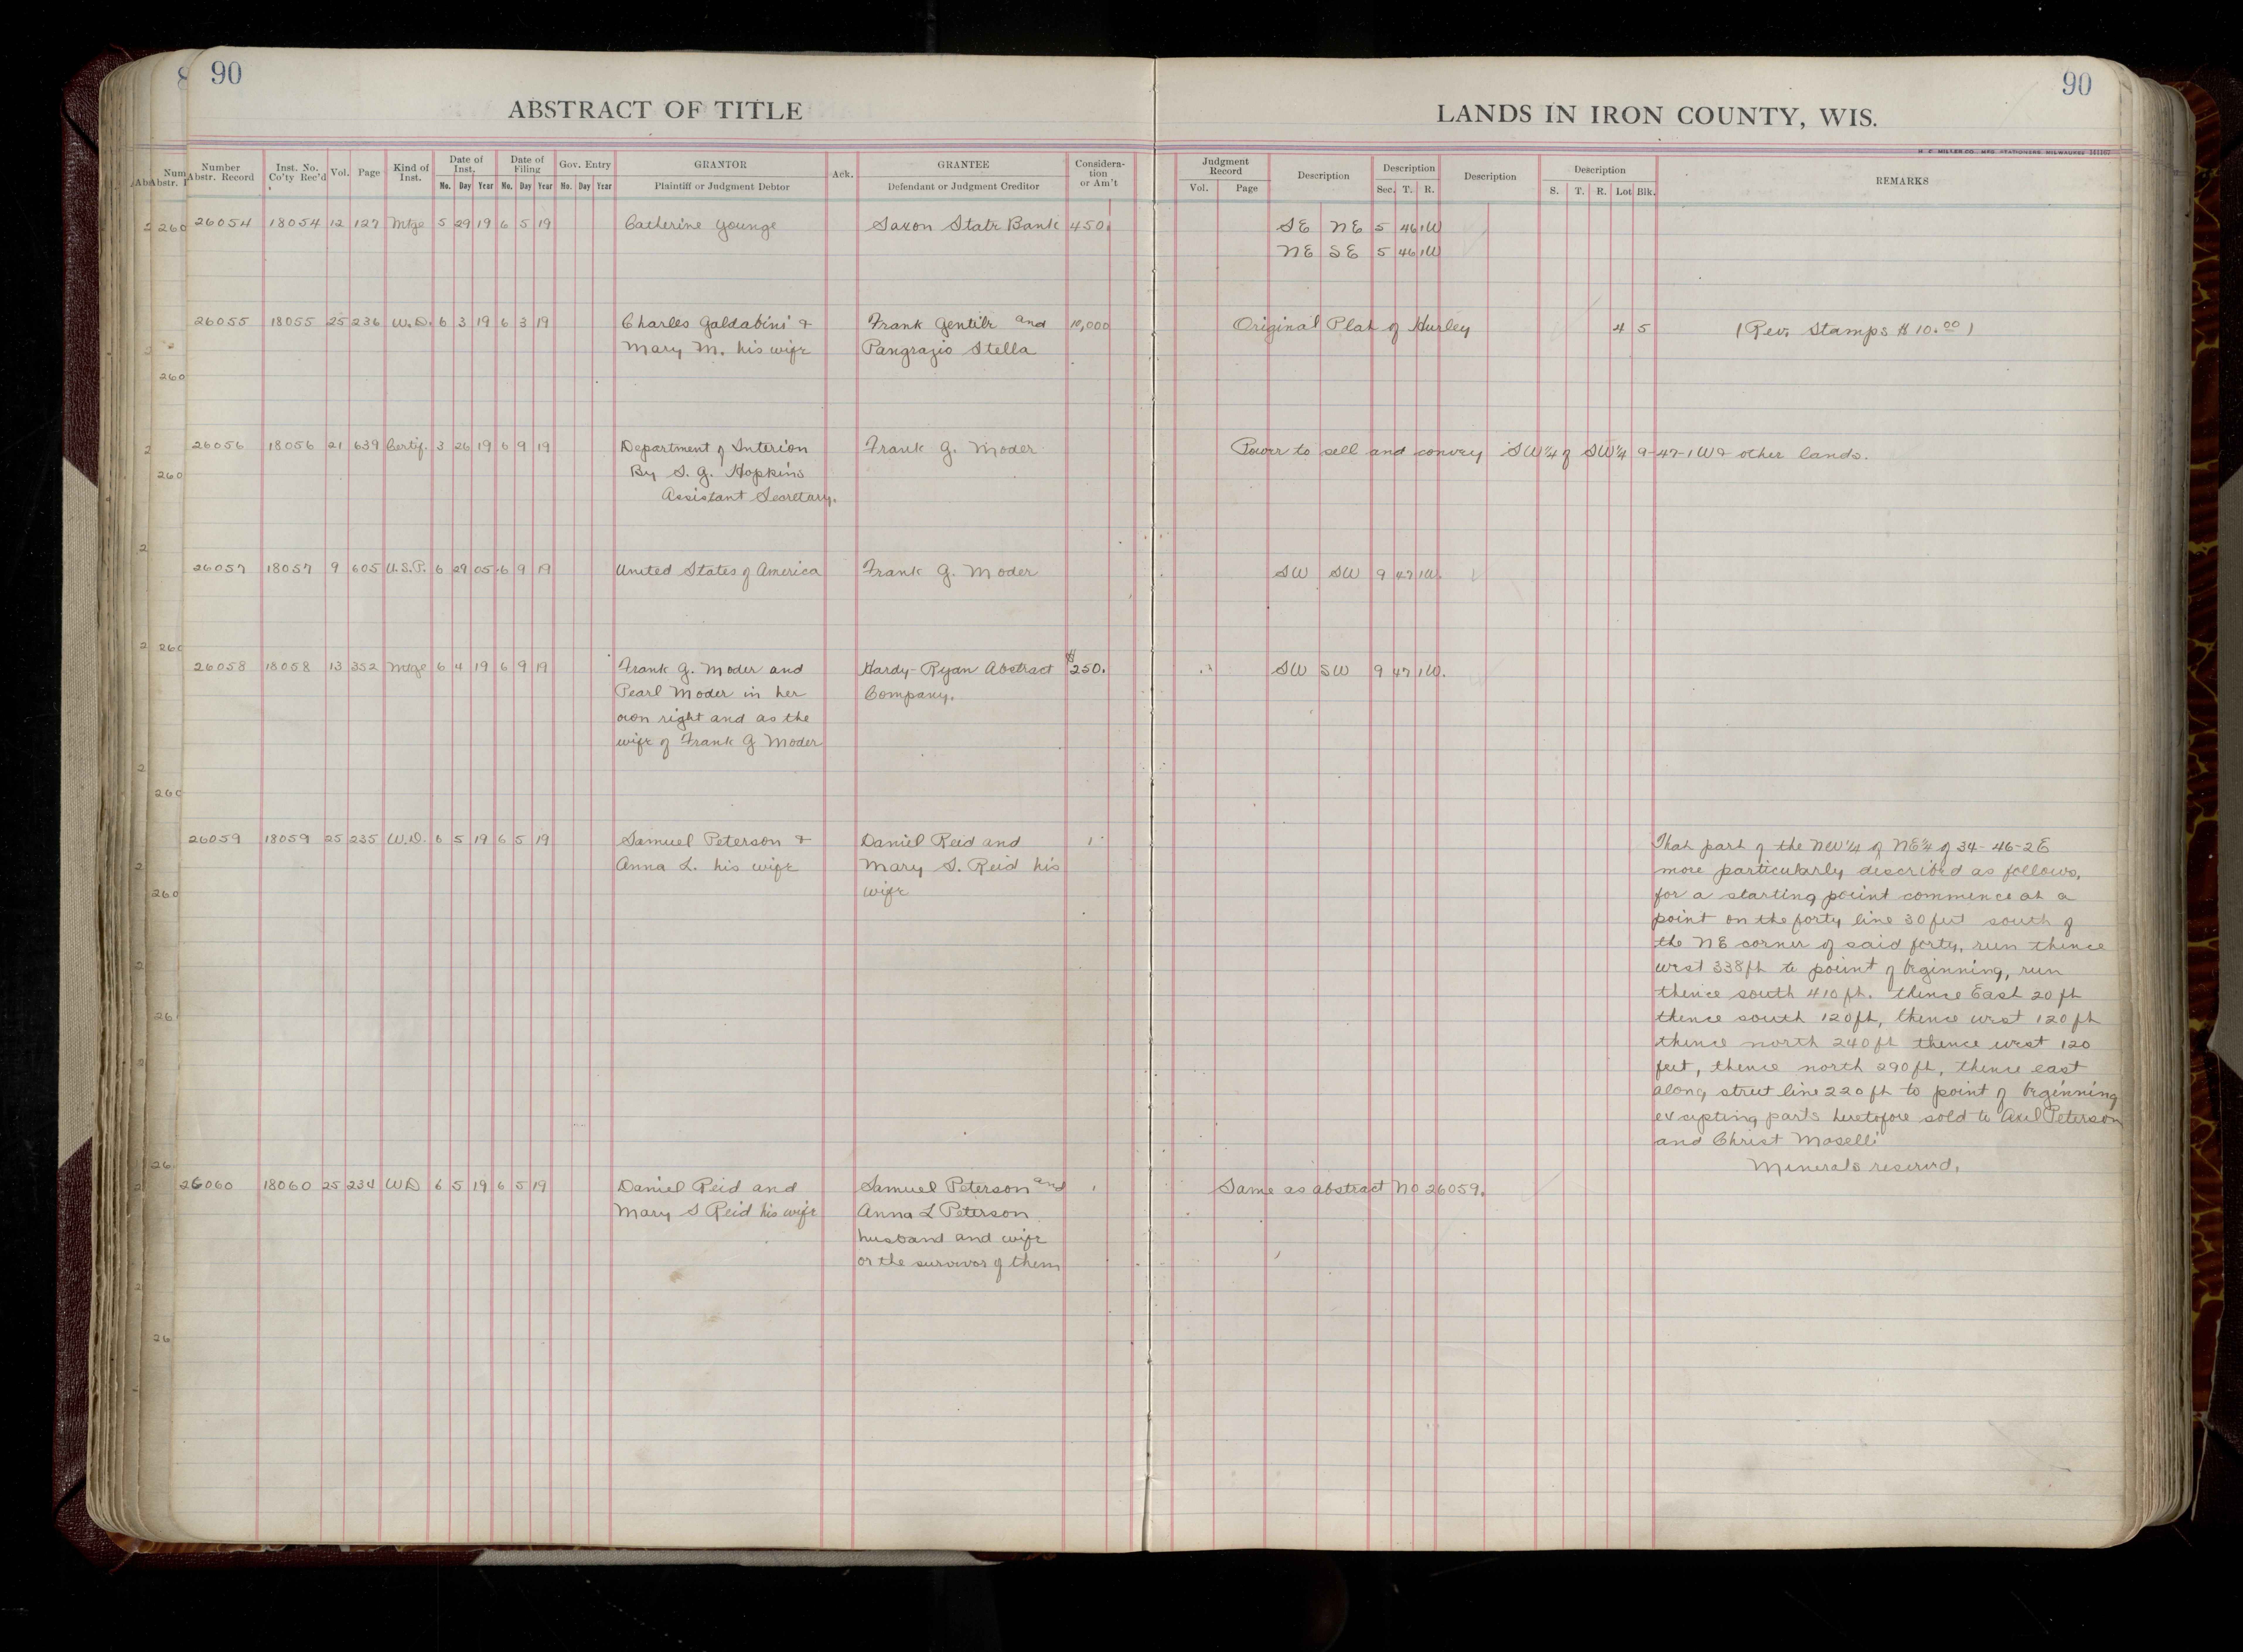 90
ABSTRACT OF TITLE
Number Abstr. Record
Inst. No. Co'ty Rec'd
Vol.
Page
Kind of Inst.
Date of Inst.
No. Day Year
Date of Filing
No. Day Year
Gov. Entry
No. Day Year
GRANTOR
Plaintiff or Judgment Debtor
Ack.
GRANTEE
Defendant or Judgment Creditor
Considera-
tion
or Am't
90
LANDS IN IRON COUNTY, WIS.
H. C. MILLER CO., MFG. STATIONERS, MILWAUKEE
Judgment Record
Vol. Page
Description
Description
Sec. T. R.
Description
Description
S. T. R. Lot Blk.
REMARKS
26054 18054 12 127 Mtge 5 29 19 6 5 19 Catherine Younge Saxon State Bank 450. SE NE 5 46 1W
NE SE 5 46 1W
26055 18055 25 236 W.D. 6 3 19 6 3 19 Charles Galdabini & Frank Gentile and 10,000 Original Plat of Hurley 4 5 (Rev. Stamps $10.00)
Mary M. his wife Pangrazio Stella
26056 18056 21 639 Certif. 3 26 19 6 9 19 Department of Interior Frank G. Moder Power to sell and convey SW¼ of SW¼ 9-47-1W & other lands.
By S. G. Hopkins
Assistant Secretary.
26057 18057 9 605 U.S.P. 6 29 05 6 9 19 United States of America Frank G. Moder SW SW 9 47 1W.
26058 18058 13 352 Mtge 6 4 19 6 9 19 Frank G. Moder and Hardy-Ryan Abstract $250. SW SW 9 47 1W.
Pearl Moder in her Company.
own right and as the
wife of Frank G Moder
26059 18059 25 235 W.D. 6 5 19 6 5 19 Samuel Peterson & Daniel Reid and 1 That part of the NW¼ of NE¼ of 34-46-2E
Anna L. his wife Mary S. Reid his more particularly described as follows,
wife for a starting point commence at a
point on the forty line 30 feet south of
the NE corner of said forty, run thence
west 338 ft to point of beginning, run
thence south 410 ft. thence East 20 ft
thence south 120 ft, thence west 120 ft
thence north 240 ft thence west 120
feet, thence north 290 ft, thence east
along street line 220 ft to point of beginning
excepting parts heretofore sold to Axel Peterson
and Christ Moselli
Minerals reserved.
26060 18060 25 234 WD 6 5 19 6 5 19 Daniel Reid and Samuel Peterson and 1 Same as abstract No 26059.
Mary S Reid his wife Anna L Peterson
husband and wife
or the survivor of them